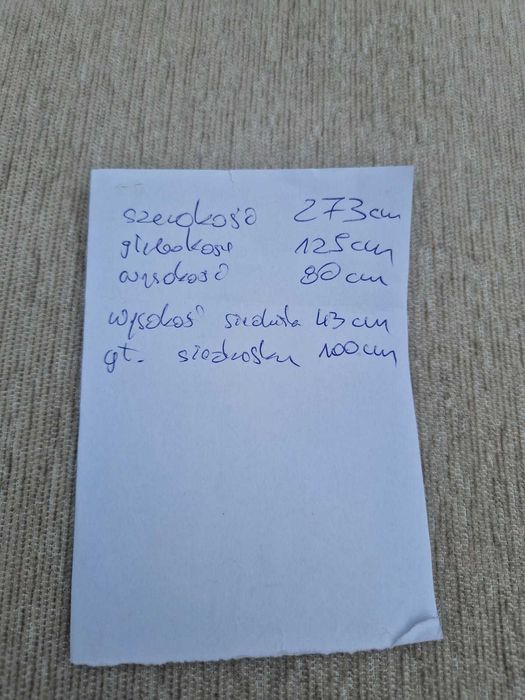 szerokość 273 cm
głębokość 125 cm
wysokość 80 cm
wysokość siedziska 43 cm
gł. siedziska 100 cm